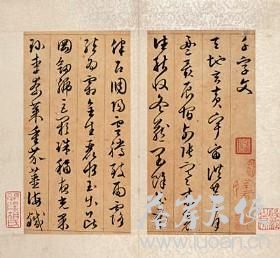 千字文
天地玄黃宇宙洪荒日月
盈昃辰宿列張寒來暑
往秋收冬藏閏餘成歲
律召調陽雲騰致雨露
結為霜金生麗水玉出崑
岡劍號巨闕珠稱夜光果
珍李柰菜重芥薑海鹹